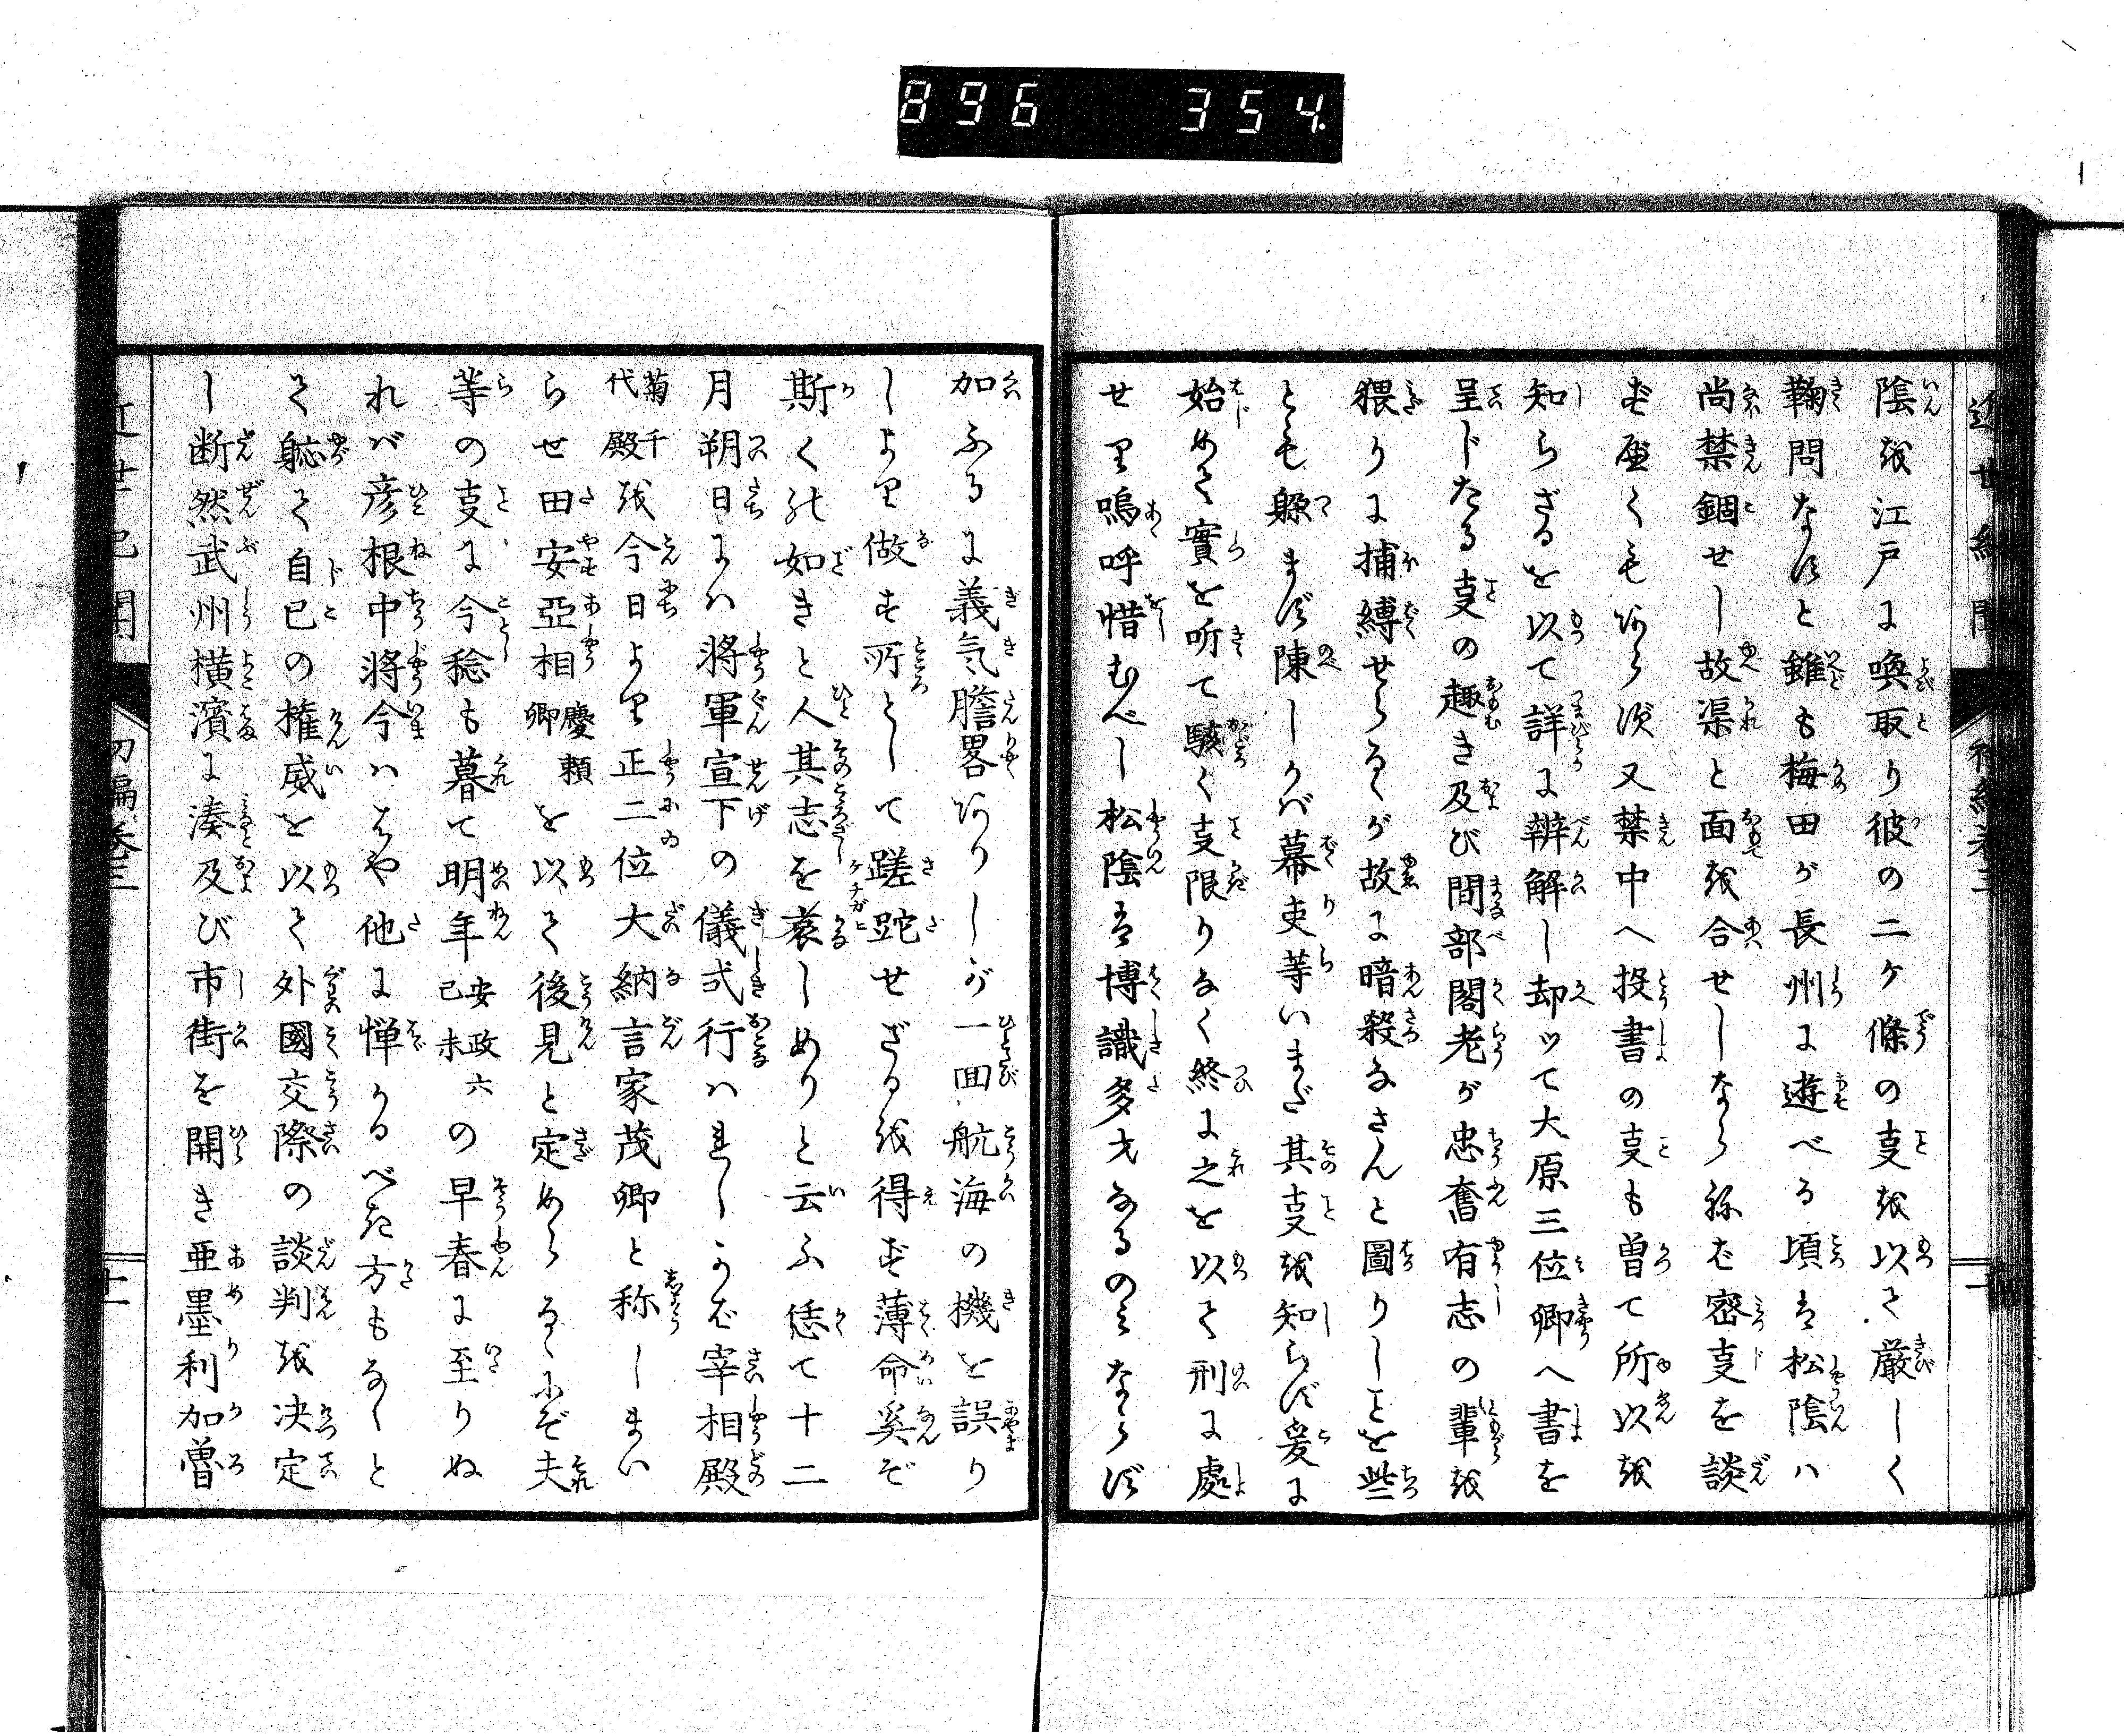 896 354.
陰を江戸に喚取り彼の二ケ條の叓を以て厳しく
鞠問なすと雖も梅田が長州に遊べる頃は松陰ハ
尚禁錮せし故渠と面を合せしなら祢ば密叓を談
ず可くもあらず又禁中へ投書の叓も曽て所以を
知らざるを以て詳に辨解し却ッて大原三位卿へ書を
呈じたる叓の趣き及び間部閣老が忠奮有志の輩を
猥りに捕縛せらるゝが故に暗殺なさんと圖りしことを些
とも繇まず陳しかバ幕吏等いまだ其叓を知らず爰に
始めて實を听て駭く叓限りなく終に之を以て刑に處
せり嗚呼惜むべし松陰は博識多才なるのミならず
加ふるに義気膽畧ありしが一回航海の機を誤り
しより做す所として蹉跎せざるを得ず薄命奚ぞ
斯くの如きと人其志を衰しめりと云ふ恁て十二
月朔日にハ將軍宣下の儀式行ハれしかば宰相殿
菊千代殿を今日より正二位大納言家茂卿と称しまい
らせ田安亞相慶頼卿を以て後見と定めらるゝにぞ夫
等の叓に今稔も暮て明年安政六己未の早春に至りぬ
れバ彦根中將今ハはや他に憚かるべき方もなしと
て躮て自己の権威を以て外國交際の談判を决定
し断然武州横濱に湊及び市街を開き亜墨利加曽
近世紀聞 初編巻三 十一